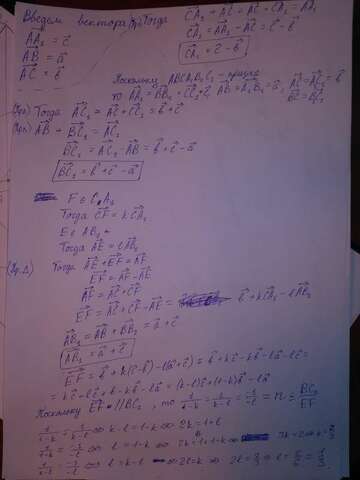 Введем вектора Тогда
AA₁ = c
AB = a
AC = b
CA₁ + AC = AC + CA₁ = AA₁
CA₁ = AA₁ - AC = c - b
CA₁ = c - b
Поскольку ABCA₁B₁C₁ - призма
то AA₁ = BB₁ = CC₁ = c, AB = A₁B₁ = a, AC = A₁C₁ = b
BC = B₁C₁
Тогда AC₁ = AC + CC₁ = b + c
AB + BC₁ = AC₁
BC₁ = AC₁ - AB = b + c - a
BC₁ = b + c - a
F ∈ CA₁
Тогда CF = kCA₁
E ∈ AB₁
Тогда AE = lAB₁
Тогда AE + EF = AF
EF = AF - AE
AF = AC + CF
EF = AC + CF - AE = b + kCA₁ - lAB₁
AB₁ = AB + BB₁ = a + c
AB₁ = a + c
EF = b + k(c - b) - l(a + c) = b + kc - kb - la - lc =
= kc - lc + b - kb - la = (k-l)c + (1-k)b - la
Поскольку EF // BC₁, то 1/(k-l) = 1/(1-k) = -1/-l = n = BC₁/EF
1/(1-k) = 1/(k-l) ⇔ k - l = 1 - k ⇔ 2k = 1 + l